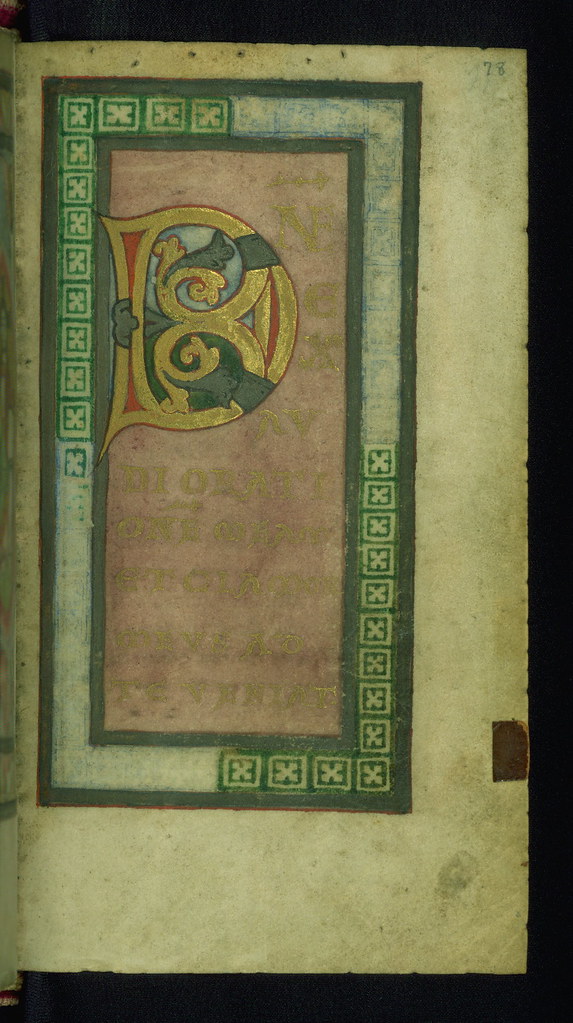 78
DNE
EX
AV
DI ORATI
ONE MEAM
ET CLAMOR
MEVS AD
TE VENIAT